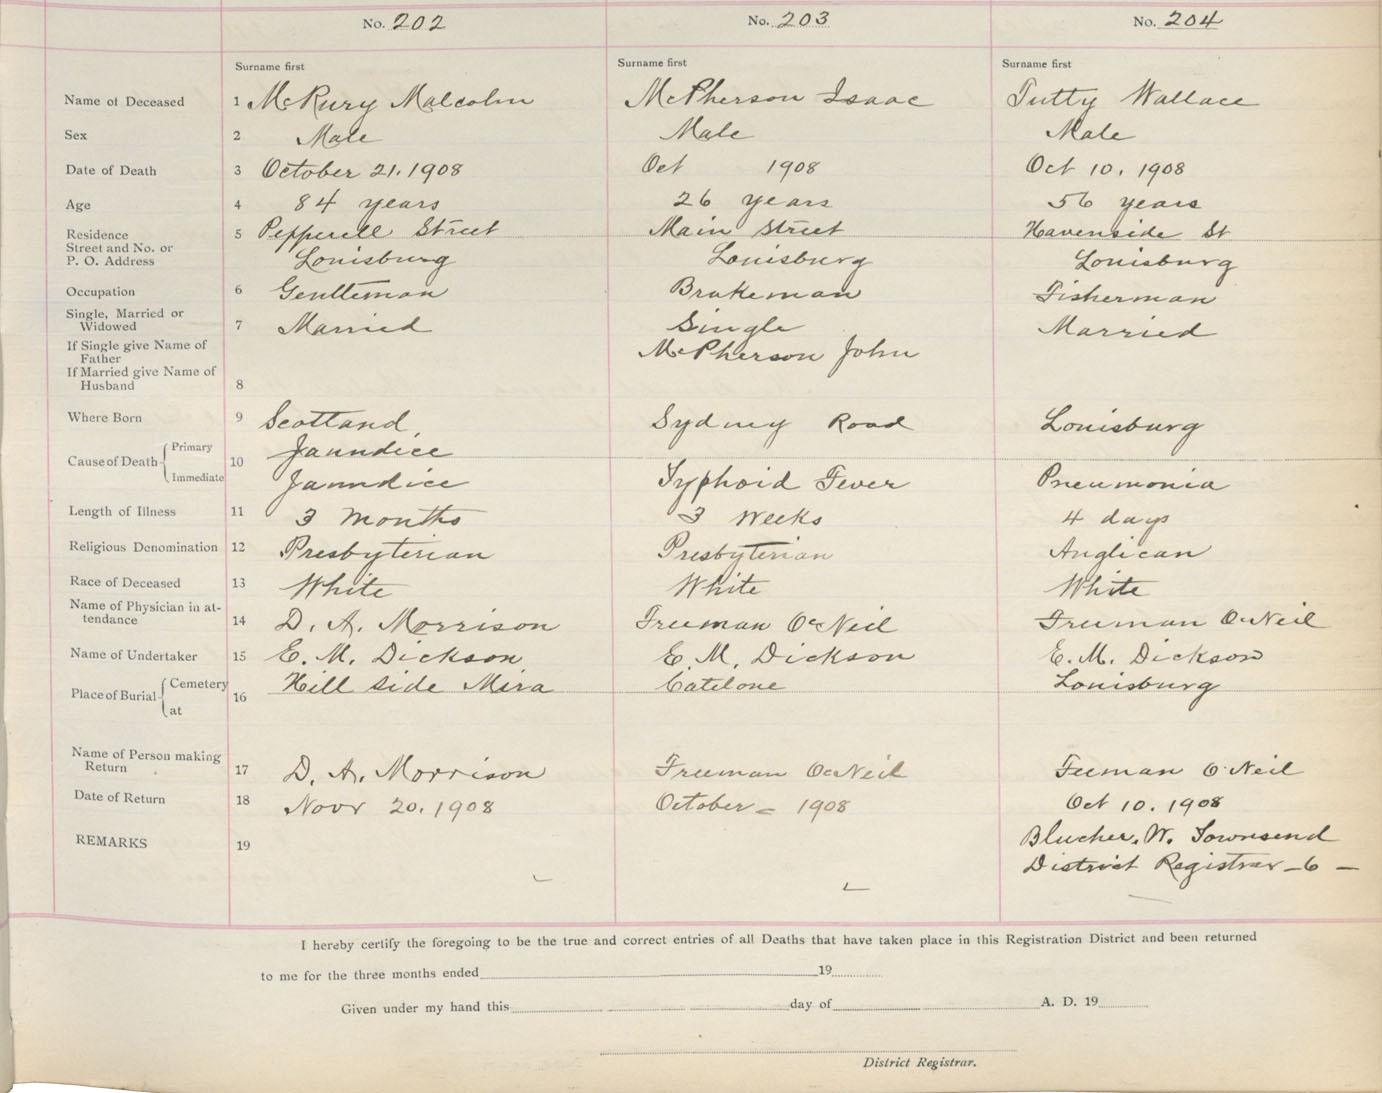 No. 202 No. 203 No. 204
Surname first Surname first Surname first
Name of Deceased 1 McRury Malcolm McPherson Isaac Tutty Wallace
Sex 2 Male Male Male
Date of Death 3 October 21. 1908 Oct 1908 Oct 10. 1908
Age 4 84 years 26 years 56 years
Residence 5 Pepperell Street Main Street Havenside St
Street and No. or
P. O. Address Louisburg Louisburg Louisburg
Occupation 6 Gentleman Brakeman Fisherman
Single, Married or
Widowed 7 Married Single Married
If Single give Name of
Father McPherson John
If Married give Name of
Husband 8
Where Born 9 Scotland Sydney Road Louisburg
Primary Jaundice
Cause of Death 10
Immediate Jaundice Typhoid Fever Pneumonia
Length of Illness 11 3 months 3 weeks 4 days
Religious Denomination 12 Presbyterian Presbyterian Anglican
Race of Deceased 13 White White White
Name of Physician in at-
tendance 14 D. A. Morrison Freeman O'Neil Freeman O'Neil
Name of Undertaker 15 E. M. Dickson E. M. Dickson E. M. Dickson
Cemetery Hill side Mira Catelone Louisburg
Place of Burial 16
at
Name of Person making
Return 17 D. A. Morrison Freeman O'Neil Feeman O'Neil
Date of Return 18 Novr 20. 1908 October = 1908 Oct 10. 1908
REMARKS 19 Blucher. W. Townsend
District Registrar - 6 -
I hereby certify the foregoing to be the true and correct entries of all Deaths that have taken place in this Registration District and been returned
to me for the three months ended 19
Given under my hand this day of A. D. 19
District Registrar.